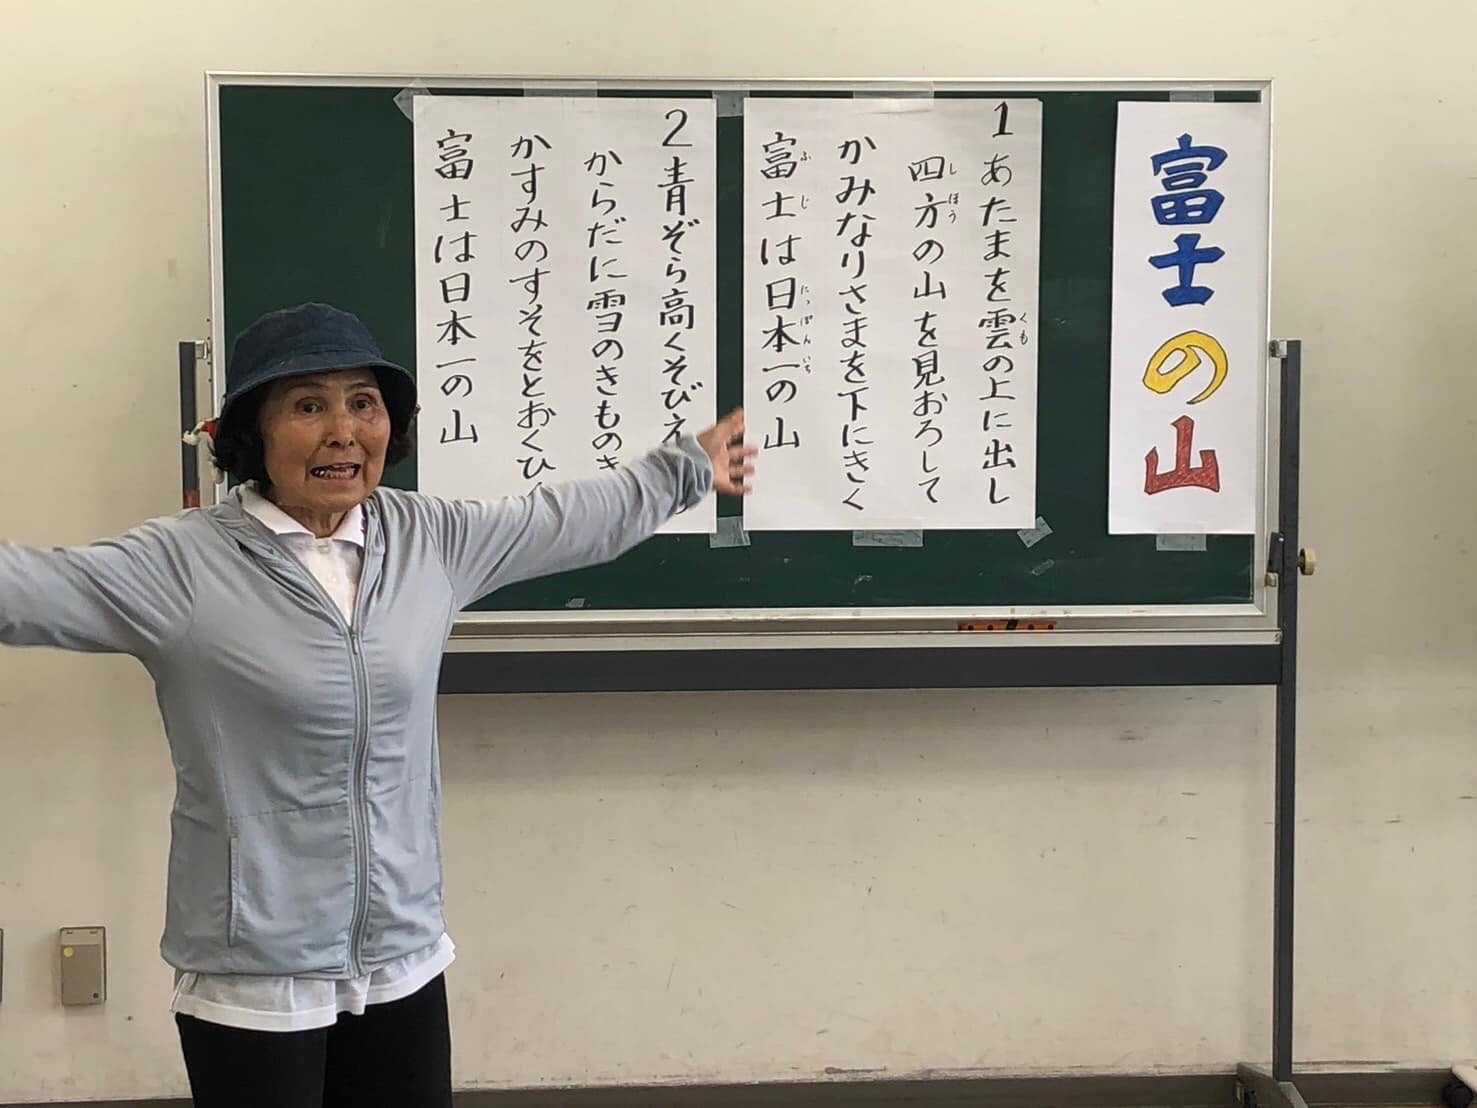 富士の山
1 あたまを雲の上に出し
くも
四方の山を見おろして
しほう
かみなりさまを下にきく
富士は日本一の山
ふじ にっぽんいち
2 青ぞら高くそびえ
からだに雪のきものき
かすみのすそをとおくひ
富士は日本一の山